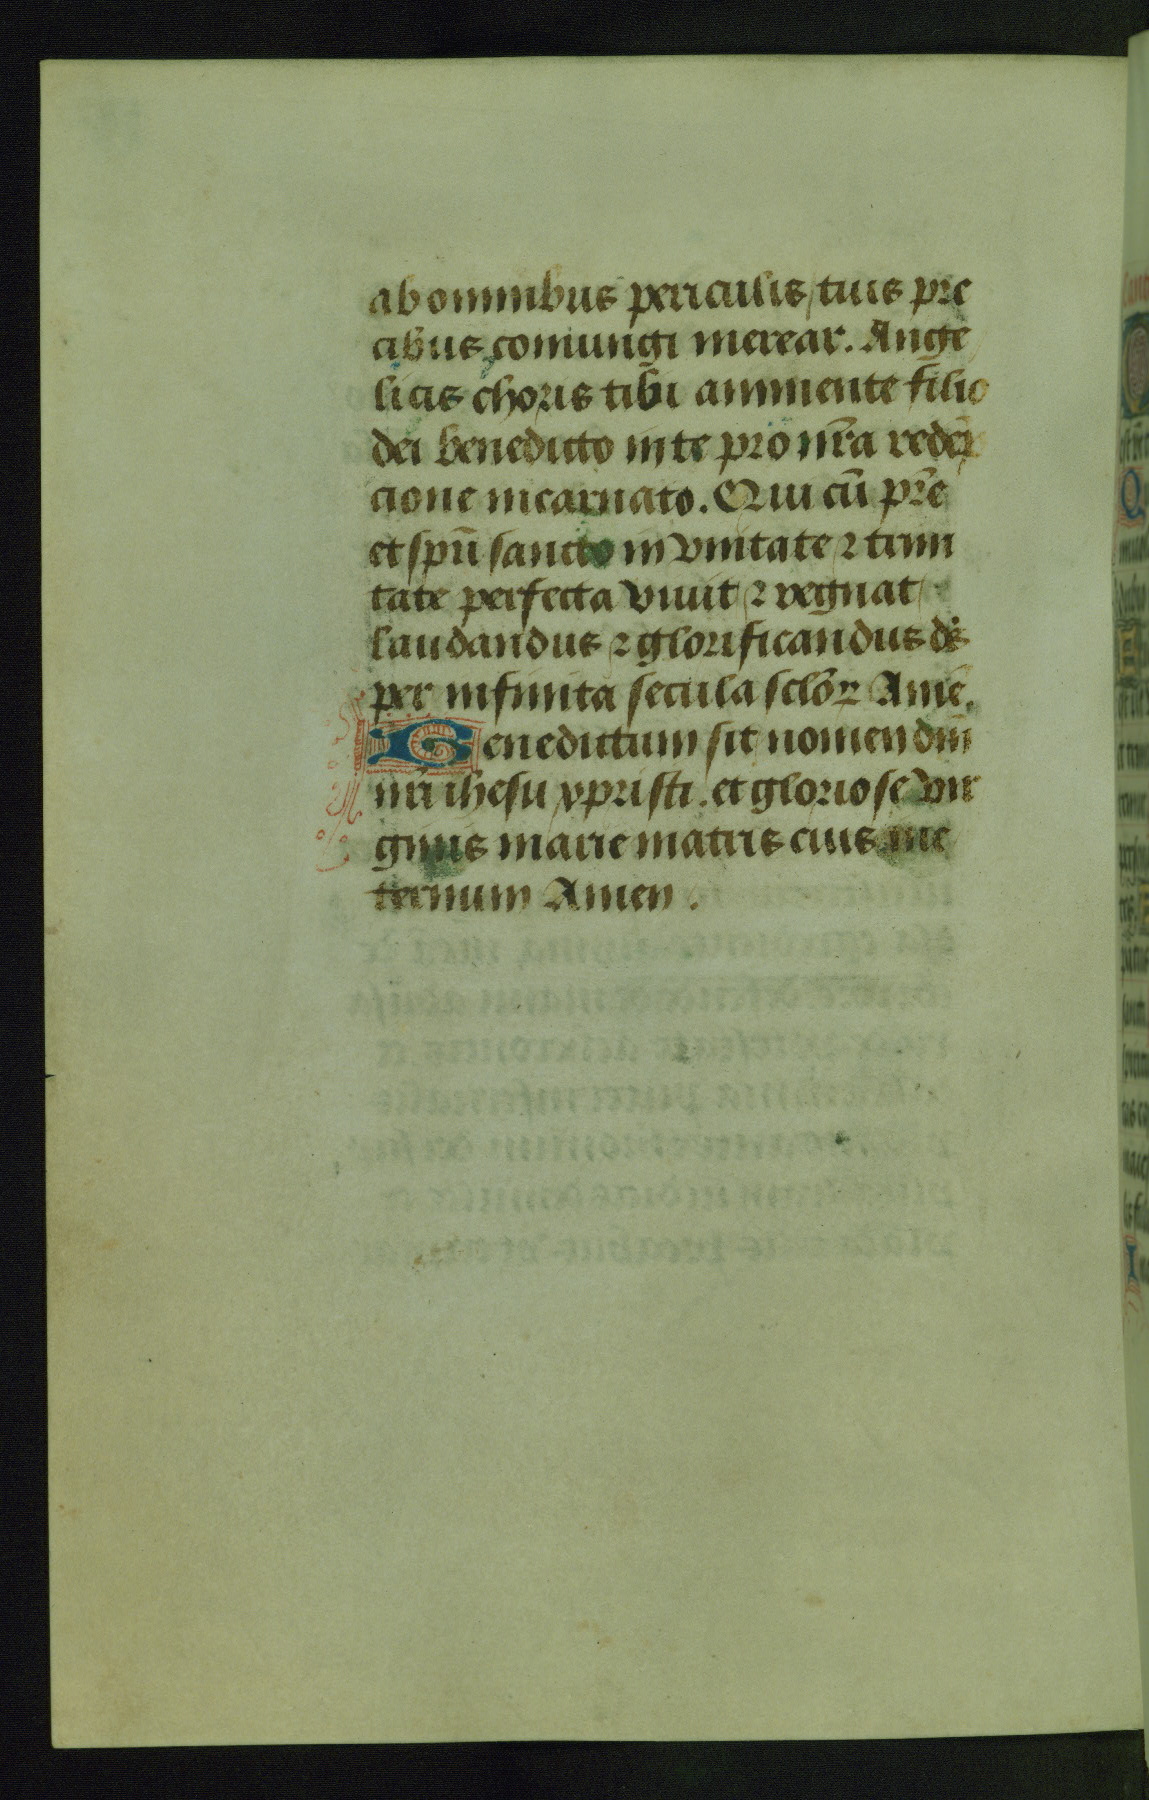 ab omnibus periculis / tuis pre
cibus coniungi merear. Ange
licis choris tibi annuente filio
dei benedicto in te pro nr̃a redẽp
cione incarnato. Qui cũ pr̃e
et spũ sancto in vnitate ⁊ trini
tate perfecta viuit / ⁊ regnat /
laudandus ⁊ glorificandus dẽs
per infinita secula sclõꝝ Amẽ.
Benedictum sit nomen dñi
nr̃i ihesu xpristi. et gloriose vir
ginis marie matris eius in e
ternum Amen.